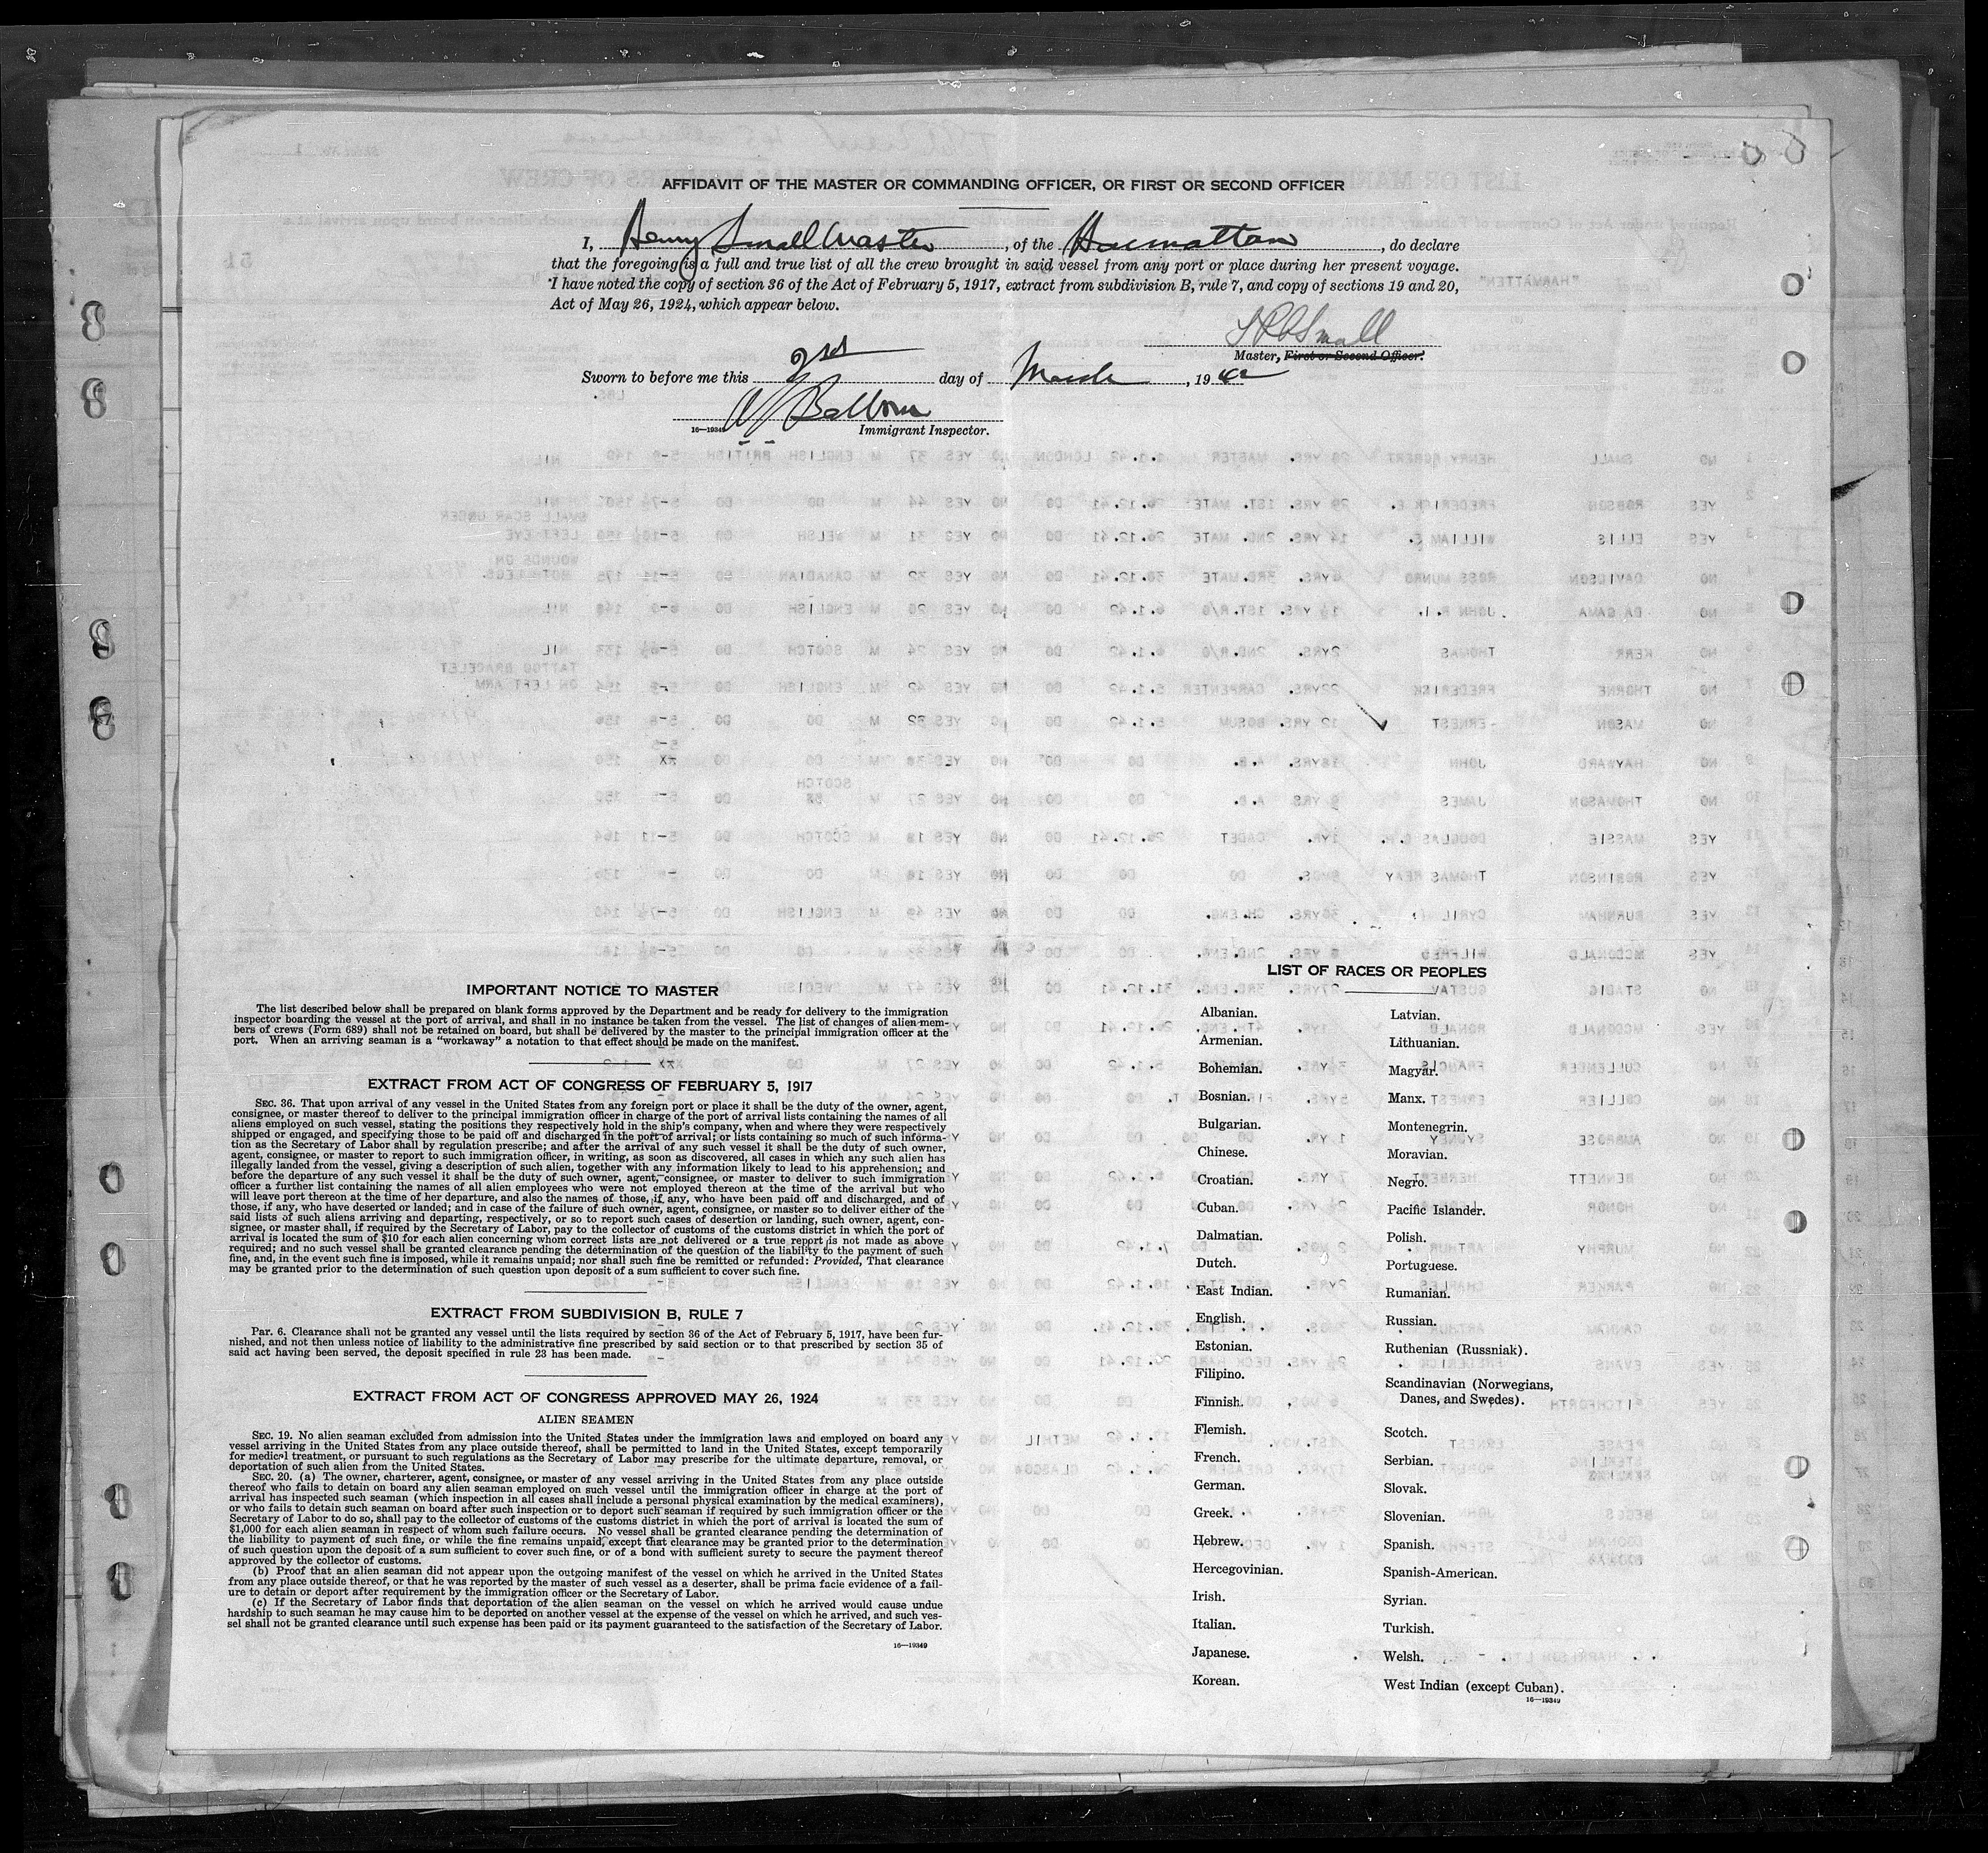 AFFIDAVIT OF THE MASTER OR COMMANDING OFFICER, OR FIRST OR SECOND OFFICER
I, Henry Small Master, of the Harmattan, do declare
that the foregoing is a full and true list of all the crew brought in said vessel from any port or place during her present voyage.
I have noted the copy of section 36 of the Act of February 5, 1917, extract from subdivision B, rule 7, and copy of sections 19 and 20,
Act of May 26, 1924, which appear below.
Small
Master, First or Second Officer.
Sworn to before me this day of March, 1942
16—19349
Immigrant Inspector.
IMPORTANT NOTICE TO MASTER
The list described below shall be prepared on blank forms approved by the Department and be ready for delivery to the immigration
inspector boarding the vessel at the port of arrival, and shall in no instance be taken from the vessel. The list of changes of alien mem-
bers of crews (Form 689) shall not be retained on board, but shall be delivered by the master to the principal immigration officer at the
port. When an arriving seaman is a "workaway" a notation to that effect should be made on the manifest.
EXTRACT FROM ACT OF CONGRESS OF FEBRUARY 5, 1917
SEC. 36. That upon arrival of any vessel in the United States from any foreign port or place it shall be the duty of the owner, agent,
consignee, or master thereof to deliver to the principal immigration officer in charge of the port of arrival lists containing the names of all
aliens employed on such vessel, stating the positions they respectively hold in the ship's company, when and where they were respectively
shipped or engaged, and specifying those to be paid off and discharged in the port of arrival; or lists containing so much of such informa-
tion as the Secretary of Labor shall by regulation prescribe; and after the arrival of any such vessel it shall be the duty of such owner,
agent, consignee, or master to report to such immigration officer, in writing, as soon as discovered, all cases in which any such alien has
illegally landed from the vessel, giving a description of such alien, together with any information likely to lead to his apprehension; and
before the departure of any such vessel it shall be the duty of such owner, agent, consignee, or master to deliver to such immigration
officer a further list containing the names of all alien employees who were not employed thereon at the time of the arrival but who
will leave port thereon at the time of her departure, and also the names of those, if any, who have been paid off and discharged, and of
those, if any, who have deserted or landed; and in case of the failure of such owner, agent, consignee, or master so to deliver either of the
said lists of such aliens arriving and departing, respectively, or so to report such cases of desertion or landing, such owner, agent, con-
signee, or master shall, if required by the Secretary of Labor, pay to the collector of customs of the customs district in which the port of
arrival is located the sum of $10 for each alien concerning whom correct lists are not delivered or a true report is not made as above
required; and no such vessel shall be granted clearance pending the determination of the question of the liability to the payment of such
fine, and, in the event such fine is imposed, while it remains unpaid; nor shall such fine be remitted or refunded: Provided, That clearance
may be granted prior to the determination of such question upon deposit of a sum sufficient to cover such fine.
EXTRACT FROM SUBDIVISION B, RULE 7
Par. 6. Clearance shall not be granted any vessel until the lists required by section 36 of the Act of February 5, 1917, have been fur-
nished, and not then unless notice of liability to the administrative fine prescribed by said section or to that prescribed by section 35 of
said act having been served, the deposit specified in rule 23 has been made.
EXTRACT FROM ACT OF CONGRESS APPROVED MAY 26, 1924
ALIEN SEAMEN
SEC. 19. No alien seaman excluded from admission into the United States under the immigration laws and employed on board any
vessel arriving in the United States from any place outside thereof, shall be permitted to land in the United States, except temporarily
for medical treatment, or pursuant to such regulations as the Secretary of Labor may prescribe for the ultimate departure, removal, or
deportation of such alien from the United States.
SEC. 20. (a) The owner, charterer, agent, consignee, or master of any vessel arriving in the United States from any place outside
thereof who fails to detain on board any alien seaman employed on such vessel until the immigration officer in charge at the port of
arrival has inspected such seaman (which inspection in all cases shall include a personal physical examination by the medical examiners),
or who fails to detain such seaman on board after such inspection or to deport such seaman if required by such immigration officer or the
Secretary of Labor to do so, shall pay to the collector of customs of the customs district in which the port of arrival is located the sum of
$1,000 for each alien seaman in respect of whom such failure occurs. No vessel shall be granted clearance pending the determination of
the liability to payment of such fine, or while the fine remains unpaid, except that clearance may be granted prior to the determination
of such question upon the deposit of a sum sufficient to cover such fine, or of a bond with sufficient surety to secure the payment thereof
approved by the collector of customs.
(b) Proof that an alien seaman did not appear upon the outgoing manifest of the vessel on which he arrived in the United States
from any place outside thereof, or that he was reported by the master of such vessel as a deserter, shall be prima facie evidence of a fail-
ure to detain or deport after requirement by the immigration officer or the Secretary of Labor.
(c) If the Secretary of Labor finds that deportation of the alien seaman on the vessel on which he arrived would cause undue
hardship to such seaman he may cause him to be deported on another vessel at the expense of the vessel on which he arrived, and such ves-
sel shall not be granted clearance until such expense has been paid or its payment guaranteed to the satisfaction of the Secretary of Labor.
16—19349
LIST OF RACES OR PEOPLES
Albanian.
Armenian.
Bohemian.
Bosnian.
Bulgarian.
Chinese.
Croatian.
Cuban.
Dalmatian.
Dutch.
East Indian.
English.
Estonian.
Filipino.
Finnish.
Flemish.
French.
German.
Greek.
Hebrew.
Hercegovinian.
Irish.
Italian.
Japanese.
Korean.
Latvian.
Lithuanian.
Magyar.
Manx.
Montenegrin.
Moravian.
Negro.
Pacific Islander.
Polish.
Portuguese.
Rumanian.
Russian.
Ruthenian (Russniak).
Scandinavian (Norwegians,
Danes, and Swedes).
Scotch.
Serbian.
Slovak.
Slovenian.
Spanish.
Spanish-American.
Syrian.
Turkish.
Welsh.
West Indian (except Cuban).
16—19349